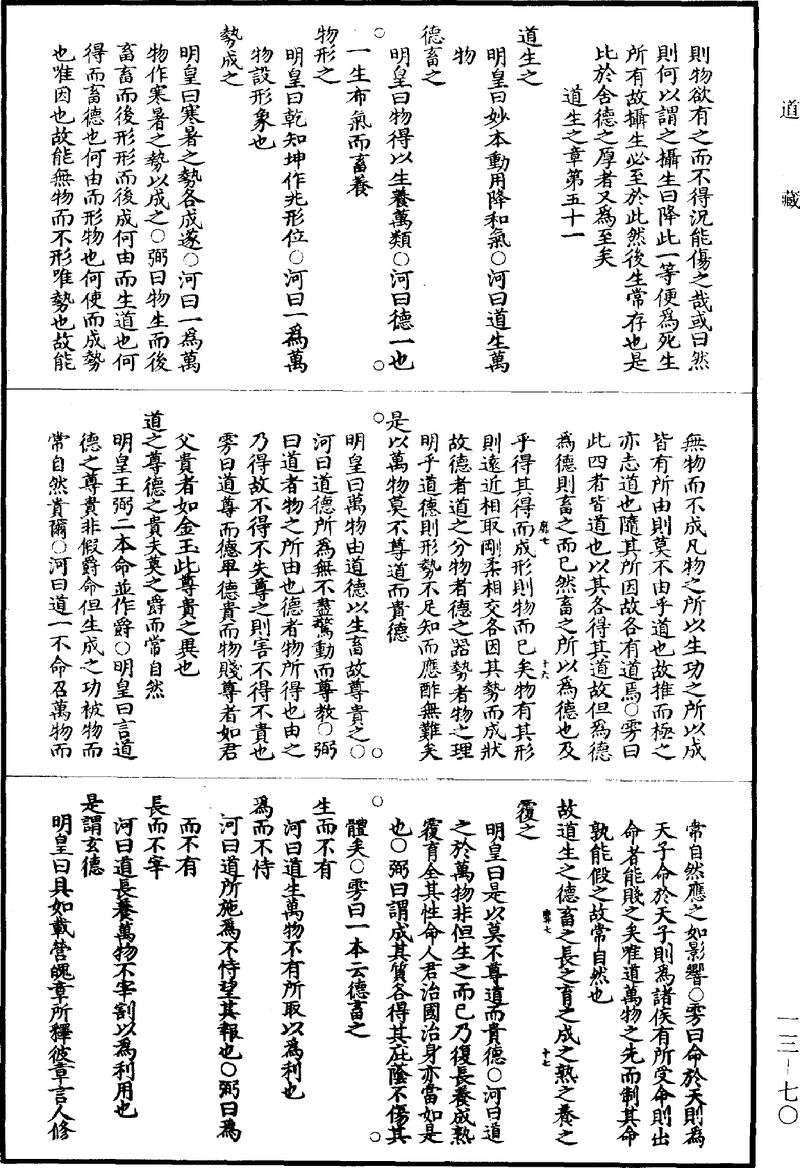 道藏
則物欲有之而不得況能傷之哉或曰然
則何以謂之攝生曰降此一等便為死生
所有故攝生必至於此然後生常存也是
比於含德之厚者又為至矣
道生之章第五十一
道生之
明皇曰妙本動用降和氣○河曰道生萬
物
德畜之
明皇曰物得以生養萬類○河曰德一也
○一生布氣而畜養○
物形之
明皇曰乾知坤作兆形位○河曰一為萬
物設形象也
勢成之
明皇曰寒暑之勢各成遂○河曰一為萬
物作寒暑之勢以成之○弼曰物生而後
畜畜而後形形而後成何由而生道也何
得而畜德也何由而形物也何使而成勢
也唯因也故能無物而不形唯勢也故能
無物而不成凡物之所以生功之所以成
皆有所由則莫不由乎道也故推而極之
亦志道也隨其所因故各有道焉○雱曰
此四者皆道也以其各得其道故但為德
為德則畜之而已然畜之所以為德也及
乎得其得而成形則物而已矣物有其形
則遠近相取剛柔相交各因其勢而成狀
故德者道之分物者德之器勢者物之理
明乎道德則形勢不足知而應酢無難矣
是以萬物莫不尊道而貴德
○明皇曰萬物由道德以生畜故尊貴之○○
河曰道德所為無不盡驚動而尊敎○弼
曰道者物之所由也德者物所得也由之
乃得故不得不失尊之則害不得不貴也
雱曰道尊而德卑德貴而物賤尊者如君
父貴者如金玉此尊貴之異也
道之尊德之貴夫莫之爵而常自然
明皇王弼二本命並作爵○明皇曰言道
德之尊貴非假爵命但生成之功被物而
常自然貴爾○河曰道一不命召萬物而
常自然應之如影響○雱曰命於天則為
天子命於天子則為諸侯有所受命則出
命者能賤之矣唯道萬物之先而制其命
孰能假之故常自然也
故道生之德畜之長之育之成之熟之養之
覆之
明皇曰是以莫不尊道而貴德○河曰道
之於萬物非但生之而已乃復長養成熟
覆育全其性命人君治國治身亦當如是
也○弼曰謂成其質各得其庇蔭不傷其
○體矣○雱曰一本云德畜之○
生而不有
河曰道生萬物不有所取以為利也
為而不恃
河曰道所施為不恃望其報也○弼曰為
而不有
長而不宰
河曰道長養萬物不宰割以為利用也
是謂玄德
明皇曰具如載營魄章所釋彼章言人修
一三-七〇